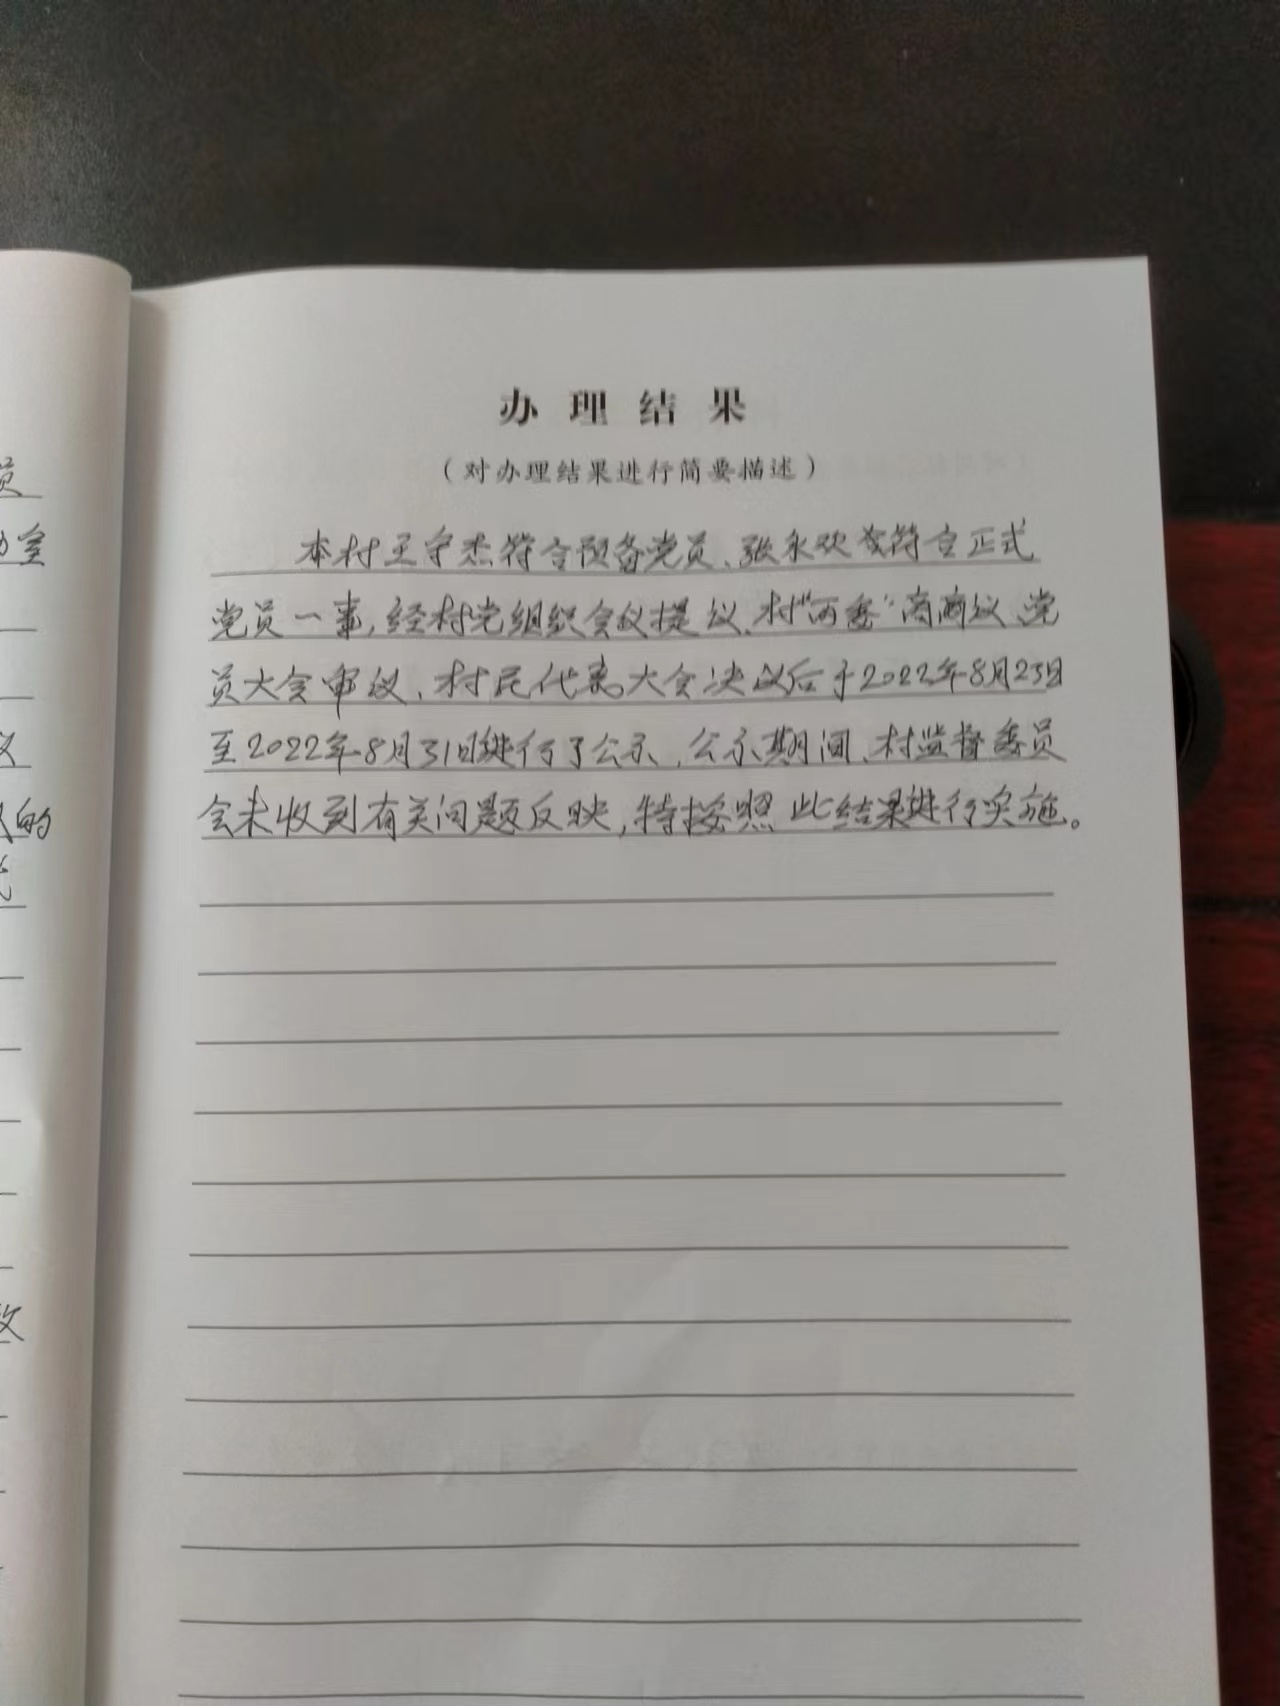 办理结果
（对办理结果进行简要描述）
本村王守杰符合预备党员、张永欢符合正式
党员一事，经村党组织会议提议、村“两委”商议、党
员大会审议、村民代表大会决议后于2022年8月23日
至2022年8月31日进行了公示，公示期间，村监督委员
会未收到有关问题反映，特按照此结果进行实施。
员
室
议
的